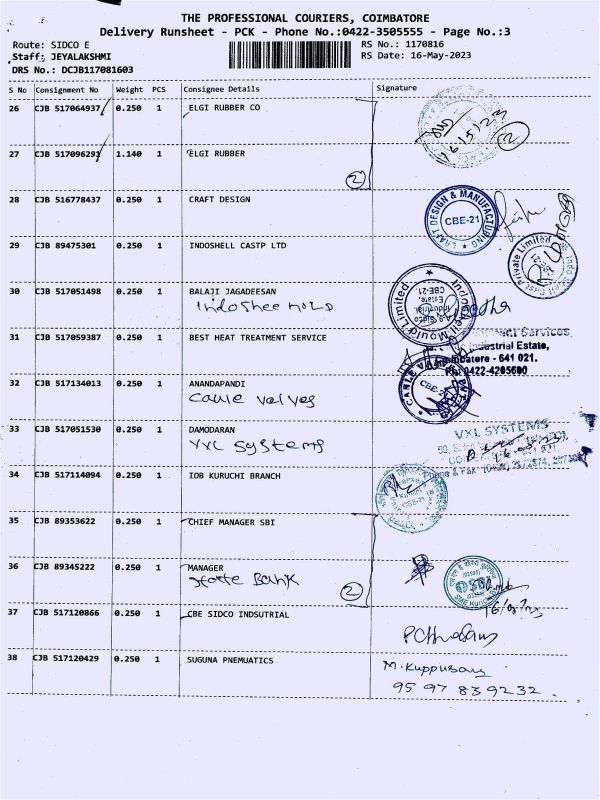 THE PROFESSIONAL COURIERS, COIMBATORE
Delivery Runsheet - PCK - Phone No.:0422-3505555 - Page No.:3
Route: SIDCO E
RS No.: 1170816
Staff: JEYALAKSHMI
RS Date: 16-May-2023
DRS No.: DCJB117081603
S No Consignment No Weight PCS Consignee Details Signature
26 CJB 517064937 0.250 1 ELGI RUBBER CO
2
27 CJB 517096291 1.140 1 ELGI RUBBER
2
28 CJB 516778437 0.250 1 CRAFT DESIGN
CRAFT DESIGN & MANUFACTURING
CBE-21
29 CJB 89475301 0.250 1 INDOSHELL CASTP LTD
Private Limited
30 CJB 517051498 0.250 1 BALAJI JAGADEESAN
Indoshell Mould Limited
CBE-21.
31 CJB 517059387 0.250 1 BEST HEAT TREATMENT SERVICE
Services
Industrial Estate,
Coimbatore - 641 021.
Ph: 0422-4205600
32 CJB 517134013 0.250 1 ANANDAPANDI
Canle valves
CBE-21
33 CJB 517051530 0.250 1 DAMODARAN
VXL Systems
VXL SYSTEMS
34 CJB 517114094 0.250 1 IOB KURUCHI BRANCH
35 CJB 89353622 0.250 1 CHIEF MANAGER SBI
36 CJB 89345222 0.250 1 MANAGER
State Bank
2
SBI
37 CJB 517120866 0.250 1 CBE SIDCO INDSUTRIAL
38 CJB 517120429 0.250 1 SUGUNA PNEMUATICS
M. Kuppusamy
95 97 839232